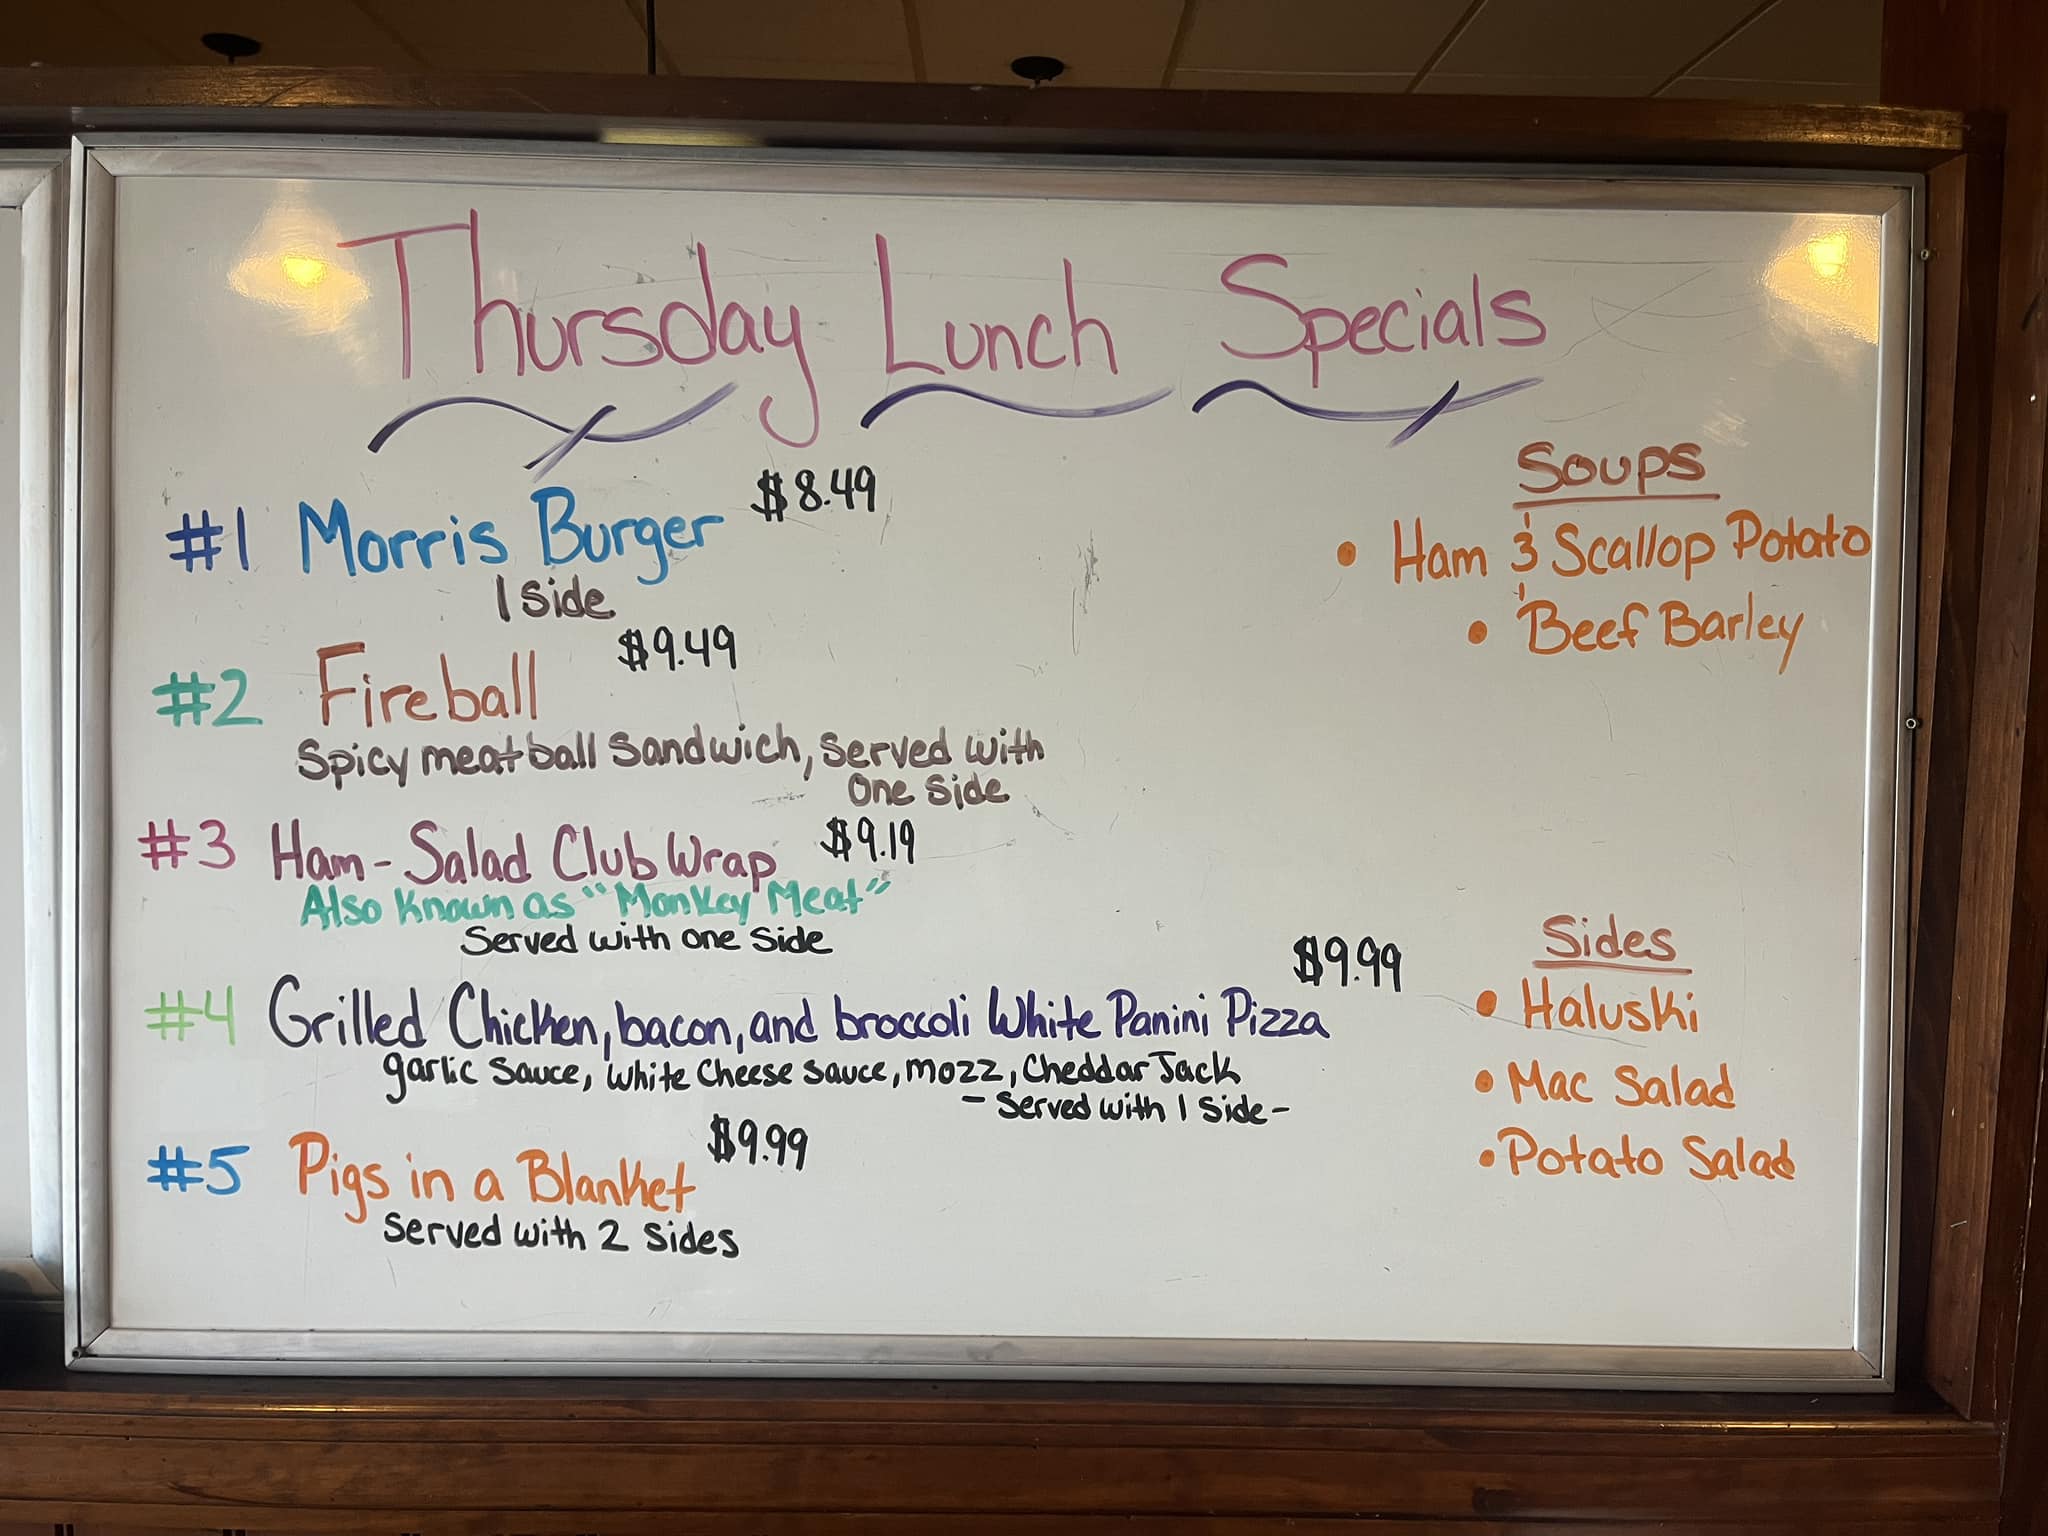 Thursday Lunch Specials
#1 Morris Burger $8.49
1 Side
#2 Fireball $9.49
Spicy meatball Sandwich, Served with
One Side
#3 Ham-Salad Club Wrap $9.19
Also Known as "Monkey Meat"
Served with one Side
#4 Grilled Chicken, bacon, and broccoli White Panini Pizza $9.99
garlic Sauce, White Cheese Sauce, mozz, Cheddar Jack
- Served with 1 Side -
#5 Pigs in a Blanket $9.99
Served with 2 Sides
Soups
• Ham & Scallop Potato
• Beef Barley
Sides
• Haluski
• Mac Salad
• Potato Salad